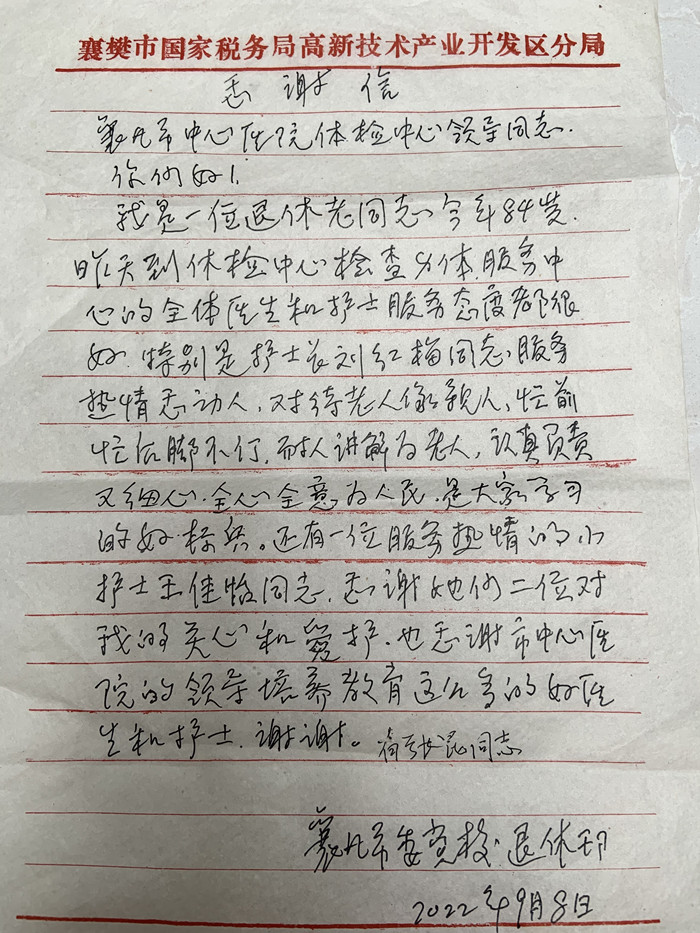 襄樊市国家税务局高新技术产业开发区分局
感谢信
襄阳市中心医院体检中心领导同志.
你们好!
我是一位退休老同志,今年84岁.
昨天到体检中心检查身体服务中
心的全体医生和护士服务态度都很
好.特别是护士长刘红梅同志,服务
热情感动人,对待老人像亲人,忙前
忙后脚不停,耐人讲解为老人,认真负责
又细心.全心全意为人民.是大家学习
的好标兵。还有一位服务热情的小
护士王佳怡同志.感谢她们二位对
我的关心和爱护.也感谢市中心医
院的领导培养教育这么多的好医
生和护士.谢谢。同志
襄阳市委党校.退休
2022年9月8日